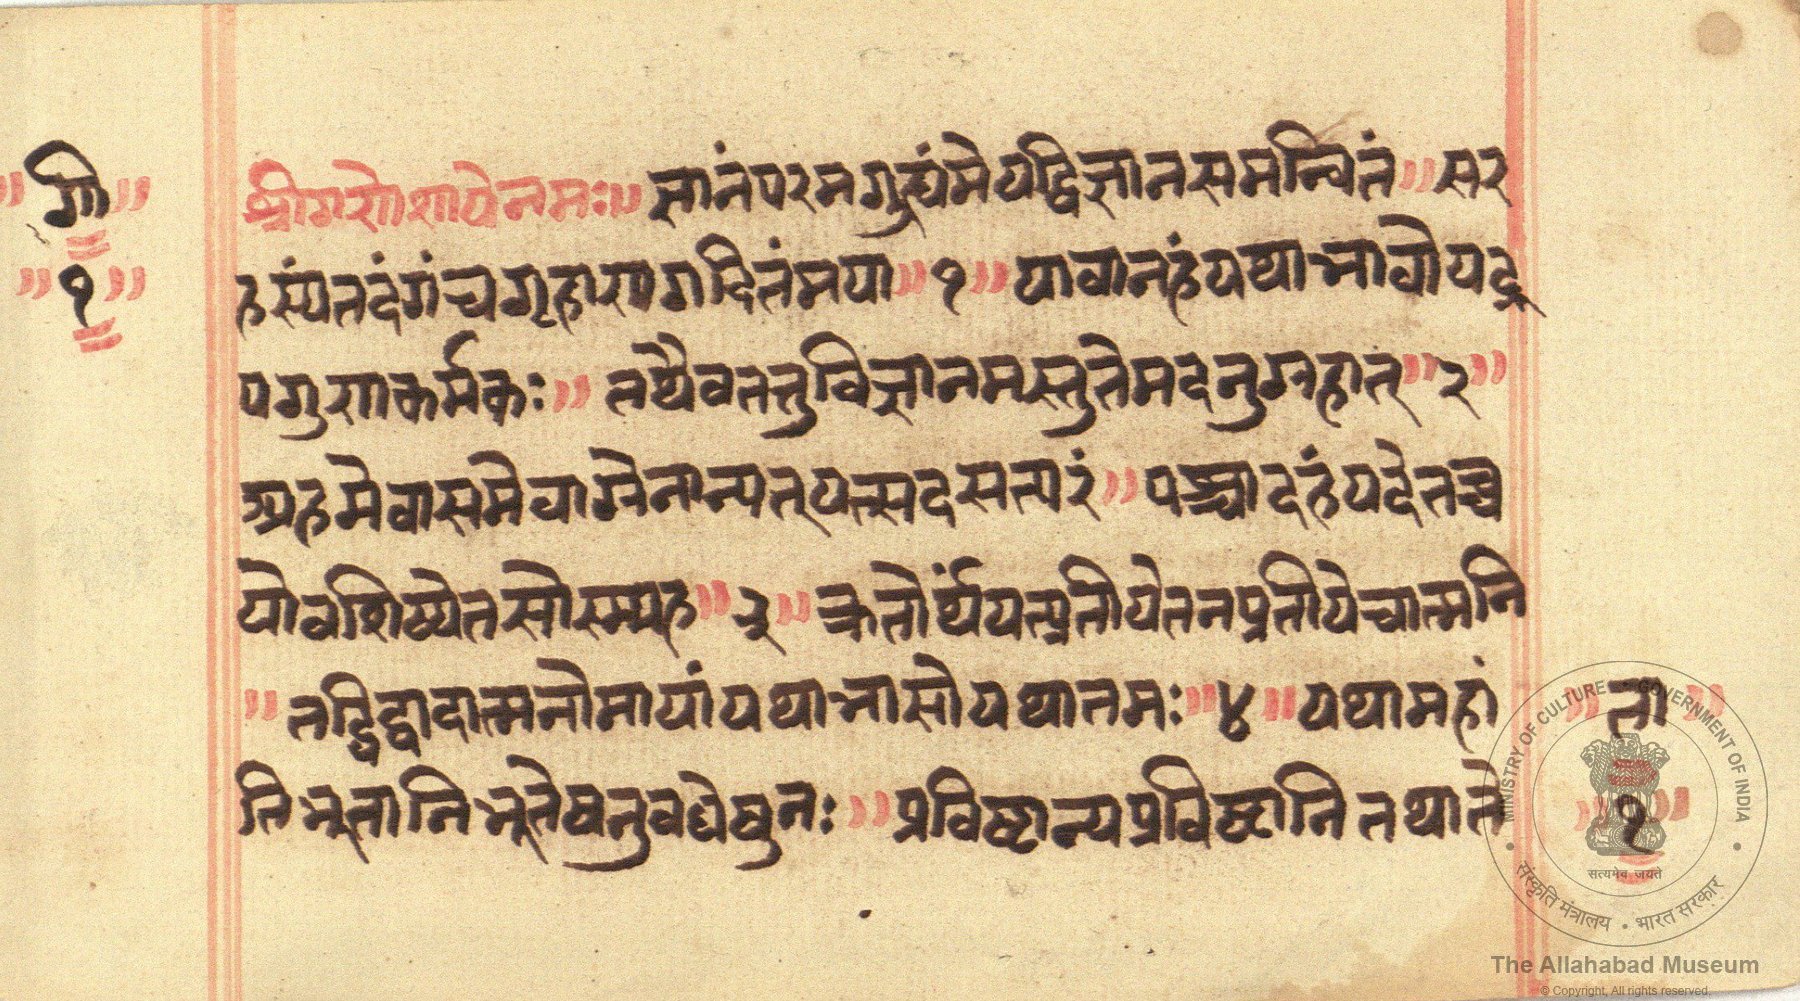 ॥ गी ॥
॥ १ ॥
श्रीगणेशायेनमः॥ ज्ञानंपरमगुह्यंमेयद्विज्ञानसमन्वितं॥ सर
हस्यंतदंगंचगृहाणगदितंमया॥ १ ॥ यावानहंयथाभावोयद्रू
पगुणकर्मकः॥ तथैवतत्तुविज्ञानमस्तुतेमदनुग्रहात्॥ २ ॥
अहमेवासमेवाग्रेनान्यत्यत्सदसत्परं॥ पश्चादहंयदेतच्च
योवशिष्येतसोस्म्यह॥ ३ ॥ ऋतेर्थंयत्प्रतीयेतनप्रतीयेचात्मनि
॥ तद्विद्यादात्मनोमायांयथाभासोयथातमः॥ ४ ॥ यथामहां
तिभूतानिभूतेषनुवद्येषुनः॥ प्रविष्टान्यप्रविष्टानितथाते
॥ ता ॥
॥ १ ॥
MINISTRY OF CULTURE GOVERNMENT OF INDIA
सत्यमेव जयते
संस्कृति मंत्रालय • भारत सरकार
The Allahabad Museum
© Copyright, All rights reserved.